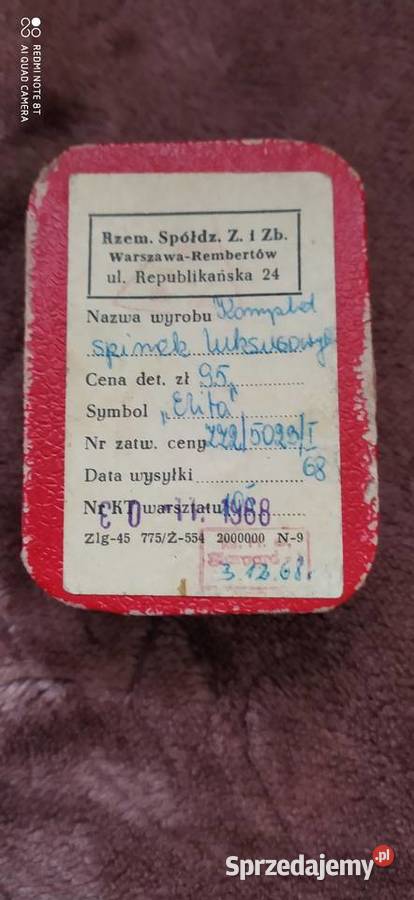 REDMI NOTE 8T
AI QUAD CAMERA
Rzem. Spółdz. Z. i Zb.
Warszawa-Rembertów
ul. Republikańska 24
Nazwa wyrobu Komplet
spinek luksusowych
Cena det. zł 95,
Symbol „Elita"
Nr zatw. ceny 772/5023/I
68
Data wysyłki
Nr KT warsztatu
30 11. 1968
Zlg-45 775/Ż-554 2000000 N-9
3.12.68.
Sprzedajemy.pl